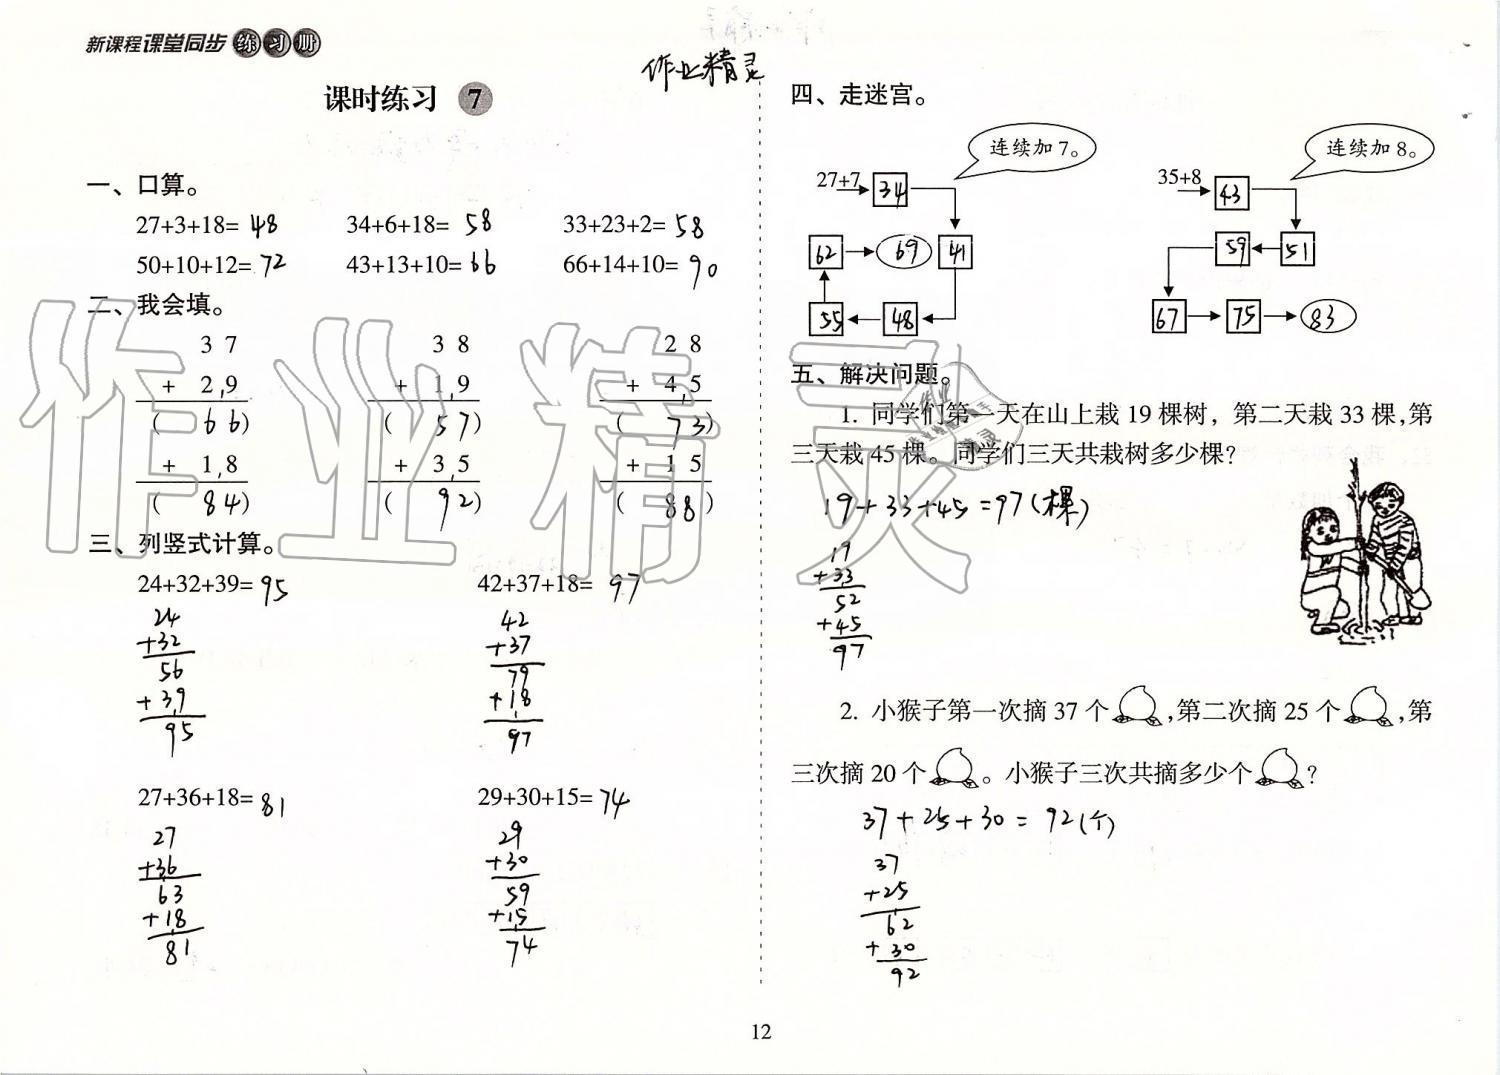 新课程课堂同步练习册
作业精灵
课时练习 7
一、口算。
27+3+18= 48 34+6+18= 58 33+23+2= 58
50+10+12= 72 43+13+10= 66 66+14+10= 90
二、我会填。
3 7 3 8 2 8
+ 2,9 + 1,9 + 4,5
( 6 6) ( 5 7) ( 7 3)
+ 1,8 + 3,5 + 1 5
( 8 4) ( 9 2) ( 8 8)
三、列竖式计算。
24+32+39= 95 42+37+18= 97
24 42
+32 +37
56 79
+39 +18
95 97
27+36+18= 81 29+30+15= 74
27 29
+36 +30
63 59
+18 +15
81 74
四、走迷宫。
连续加 7。 连续加 8。
27+7 34 35+8 43
62 69 41 59 51
55 48 67 75 83
五、解决问题。
1. 同学们第一天在山上栽 19 棵树，第二天栽 33 棵，第
三天栽 45 棵。同学们三天共栽树多少棵？
19+33+45=97(棵)
19
+33
52
+45
97
2. 小猴子第一次摘 37 个，第二次摘 25 个，第
三次摘 20 个。小猴子三次共摘多少个？
37+25+30=92(个)
37
+25
62
+30
92
12
作业精灵